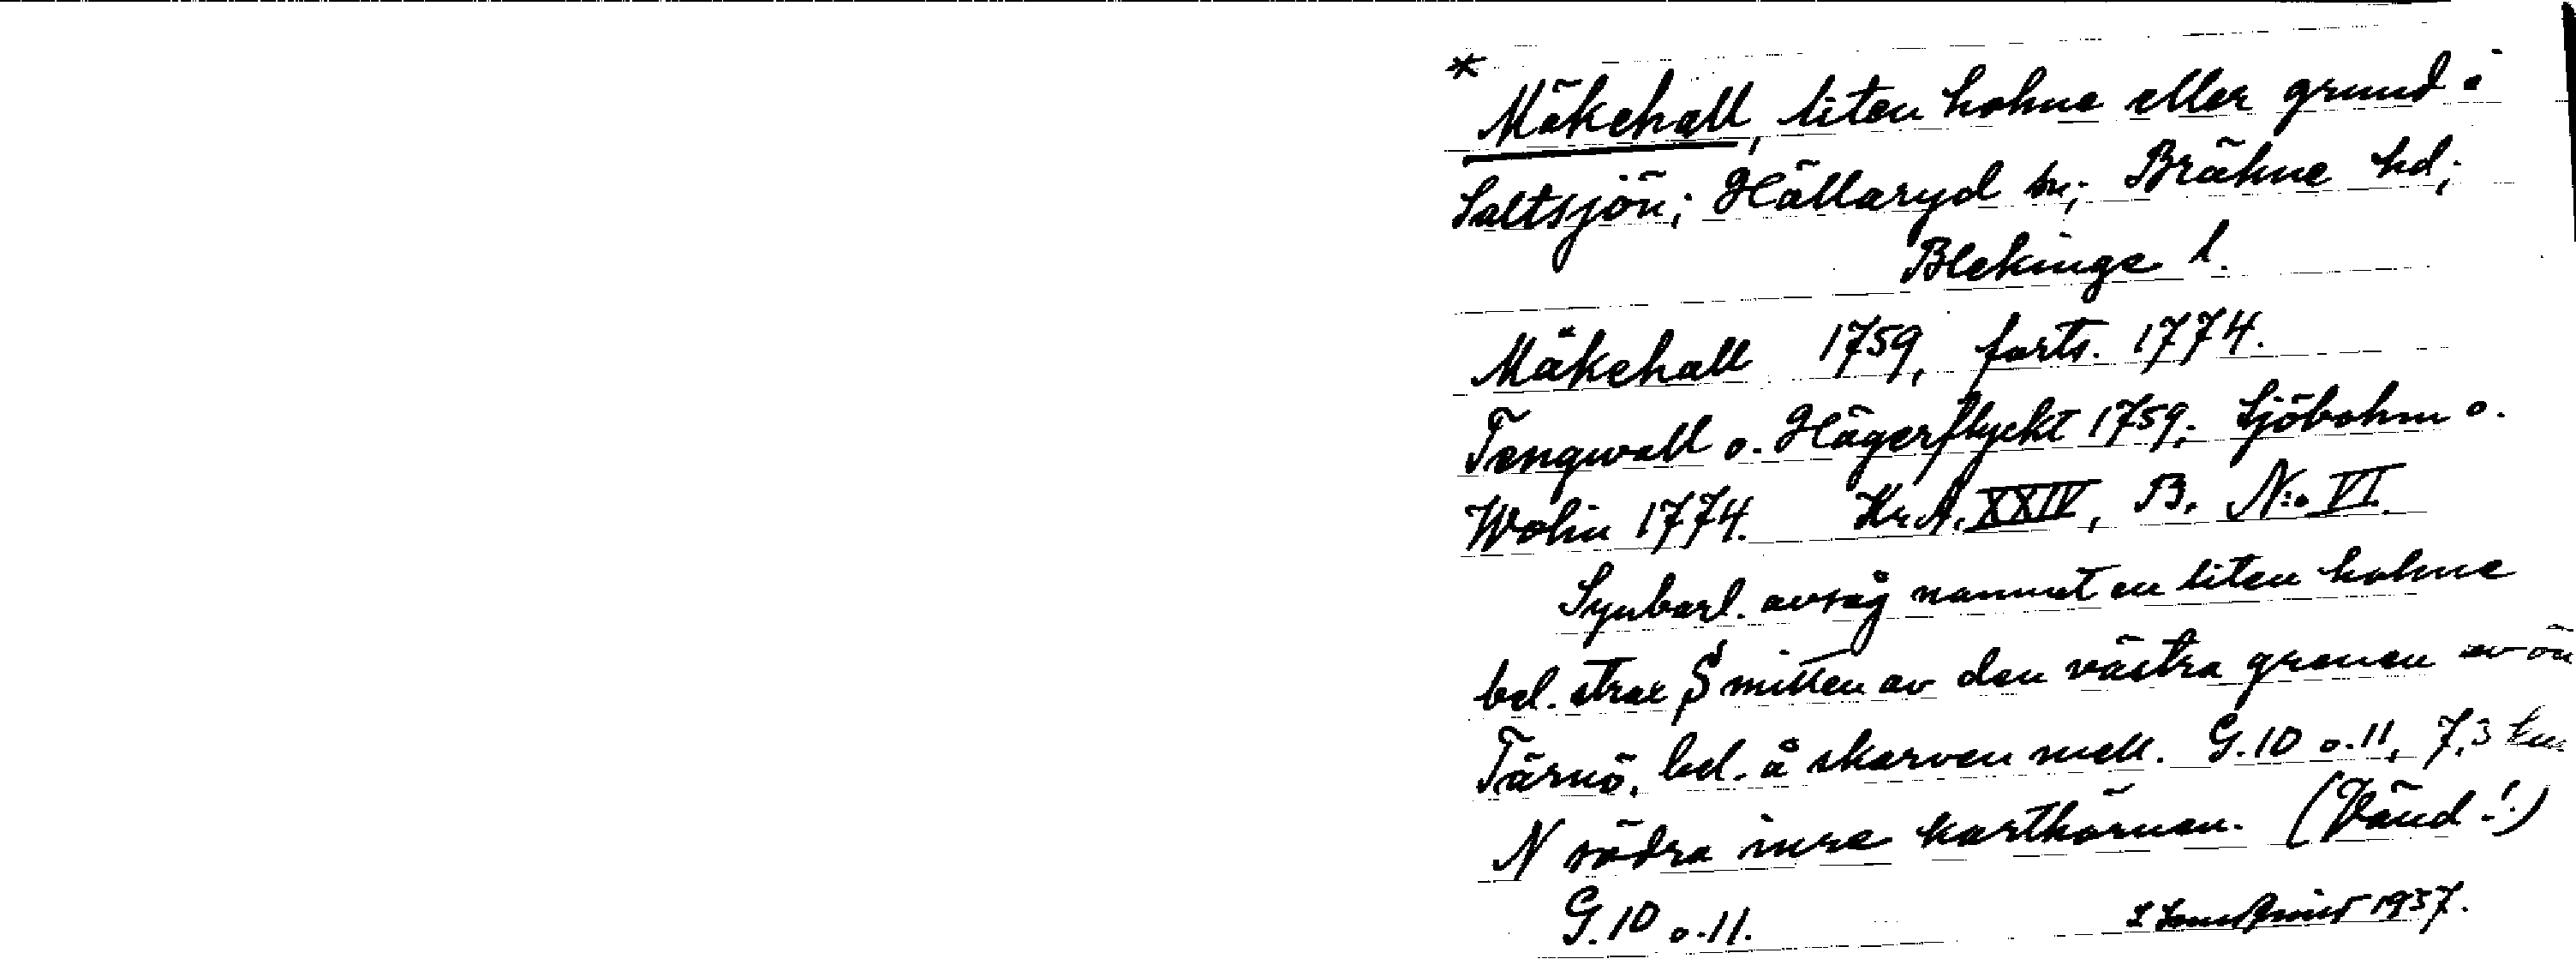 *
Mäkehall, liten holme eller grund i
Saltsjön; Hällaryd sn; Bräkne hd;
Blekinge l.
Mäkehall 1759, forts. 1774.
Tengwall o. Hägerflyckt 1759; Sjöbohm o.
Wolin 1774. Kr.A. XXIV, B. N:o VI
Synbarl. avsåg namnet en liten holme
bel. strax S mitten av den västra grenen av ön
Tärnö, bel. å skarven mell. G.10 o.11, 7,3 km
N södra inre karthörnen. (Vänd!)
G.10 o.11. 1937.